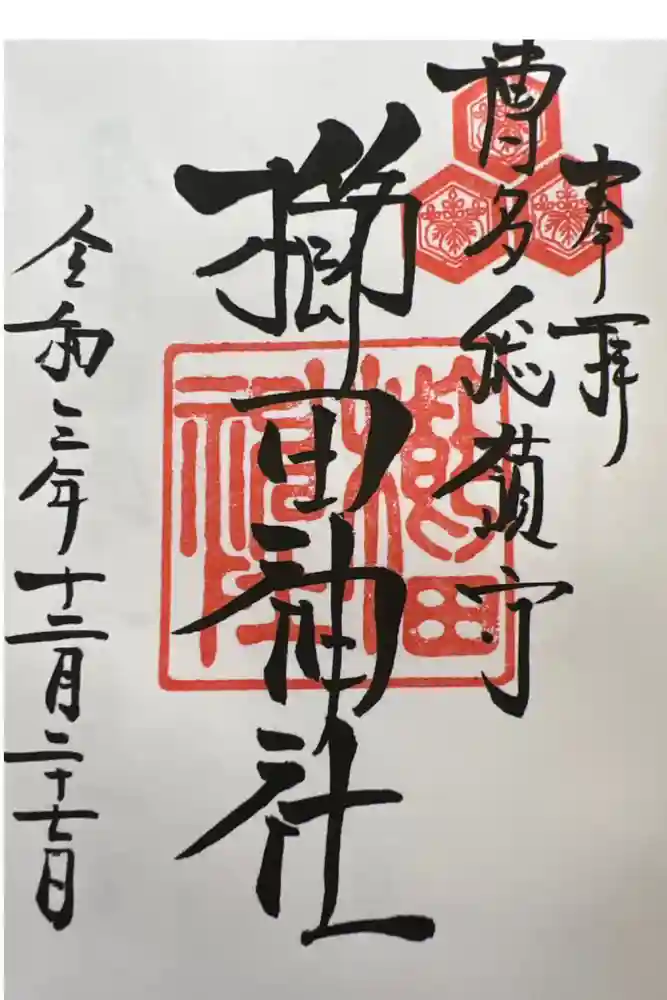 奉拝
博多総鎮守
櫛田神社
令和三年十二月二十七日
櫛田神社